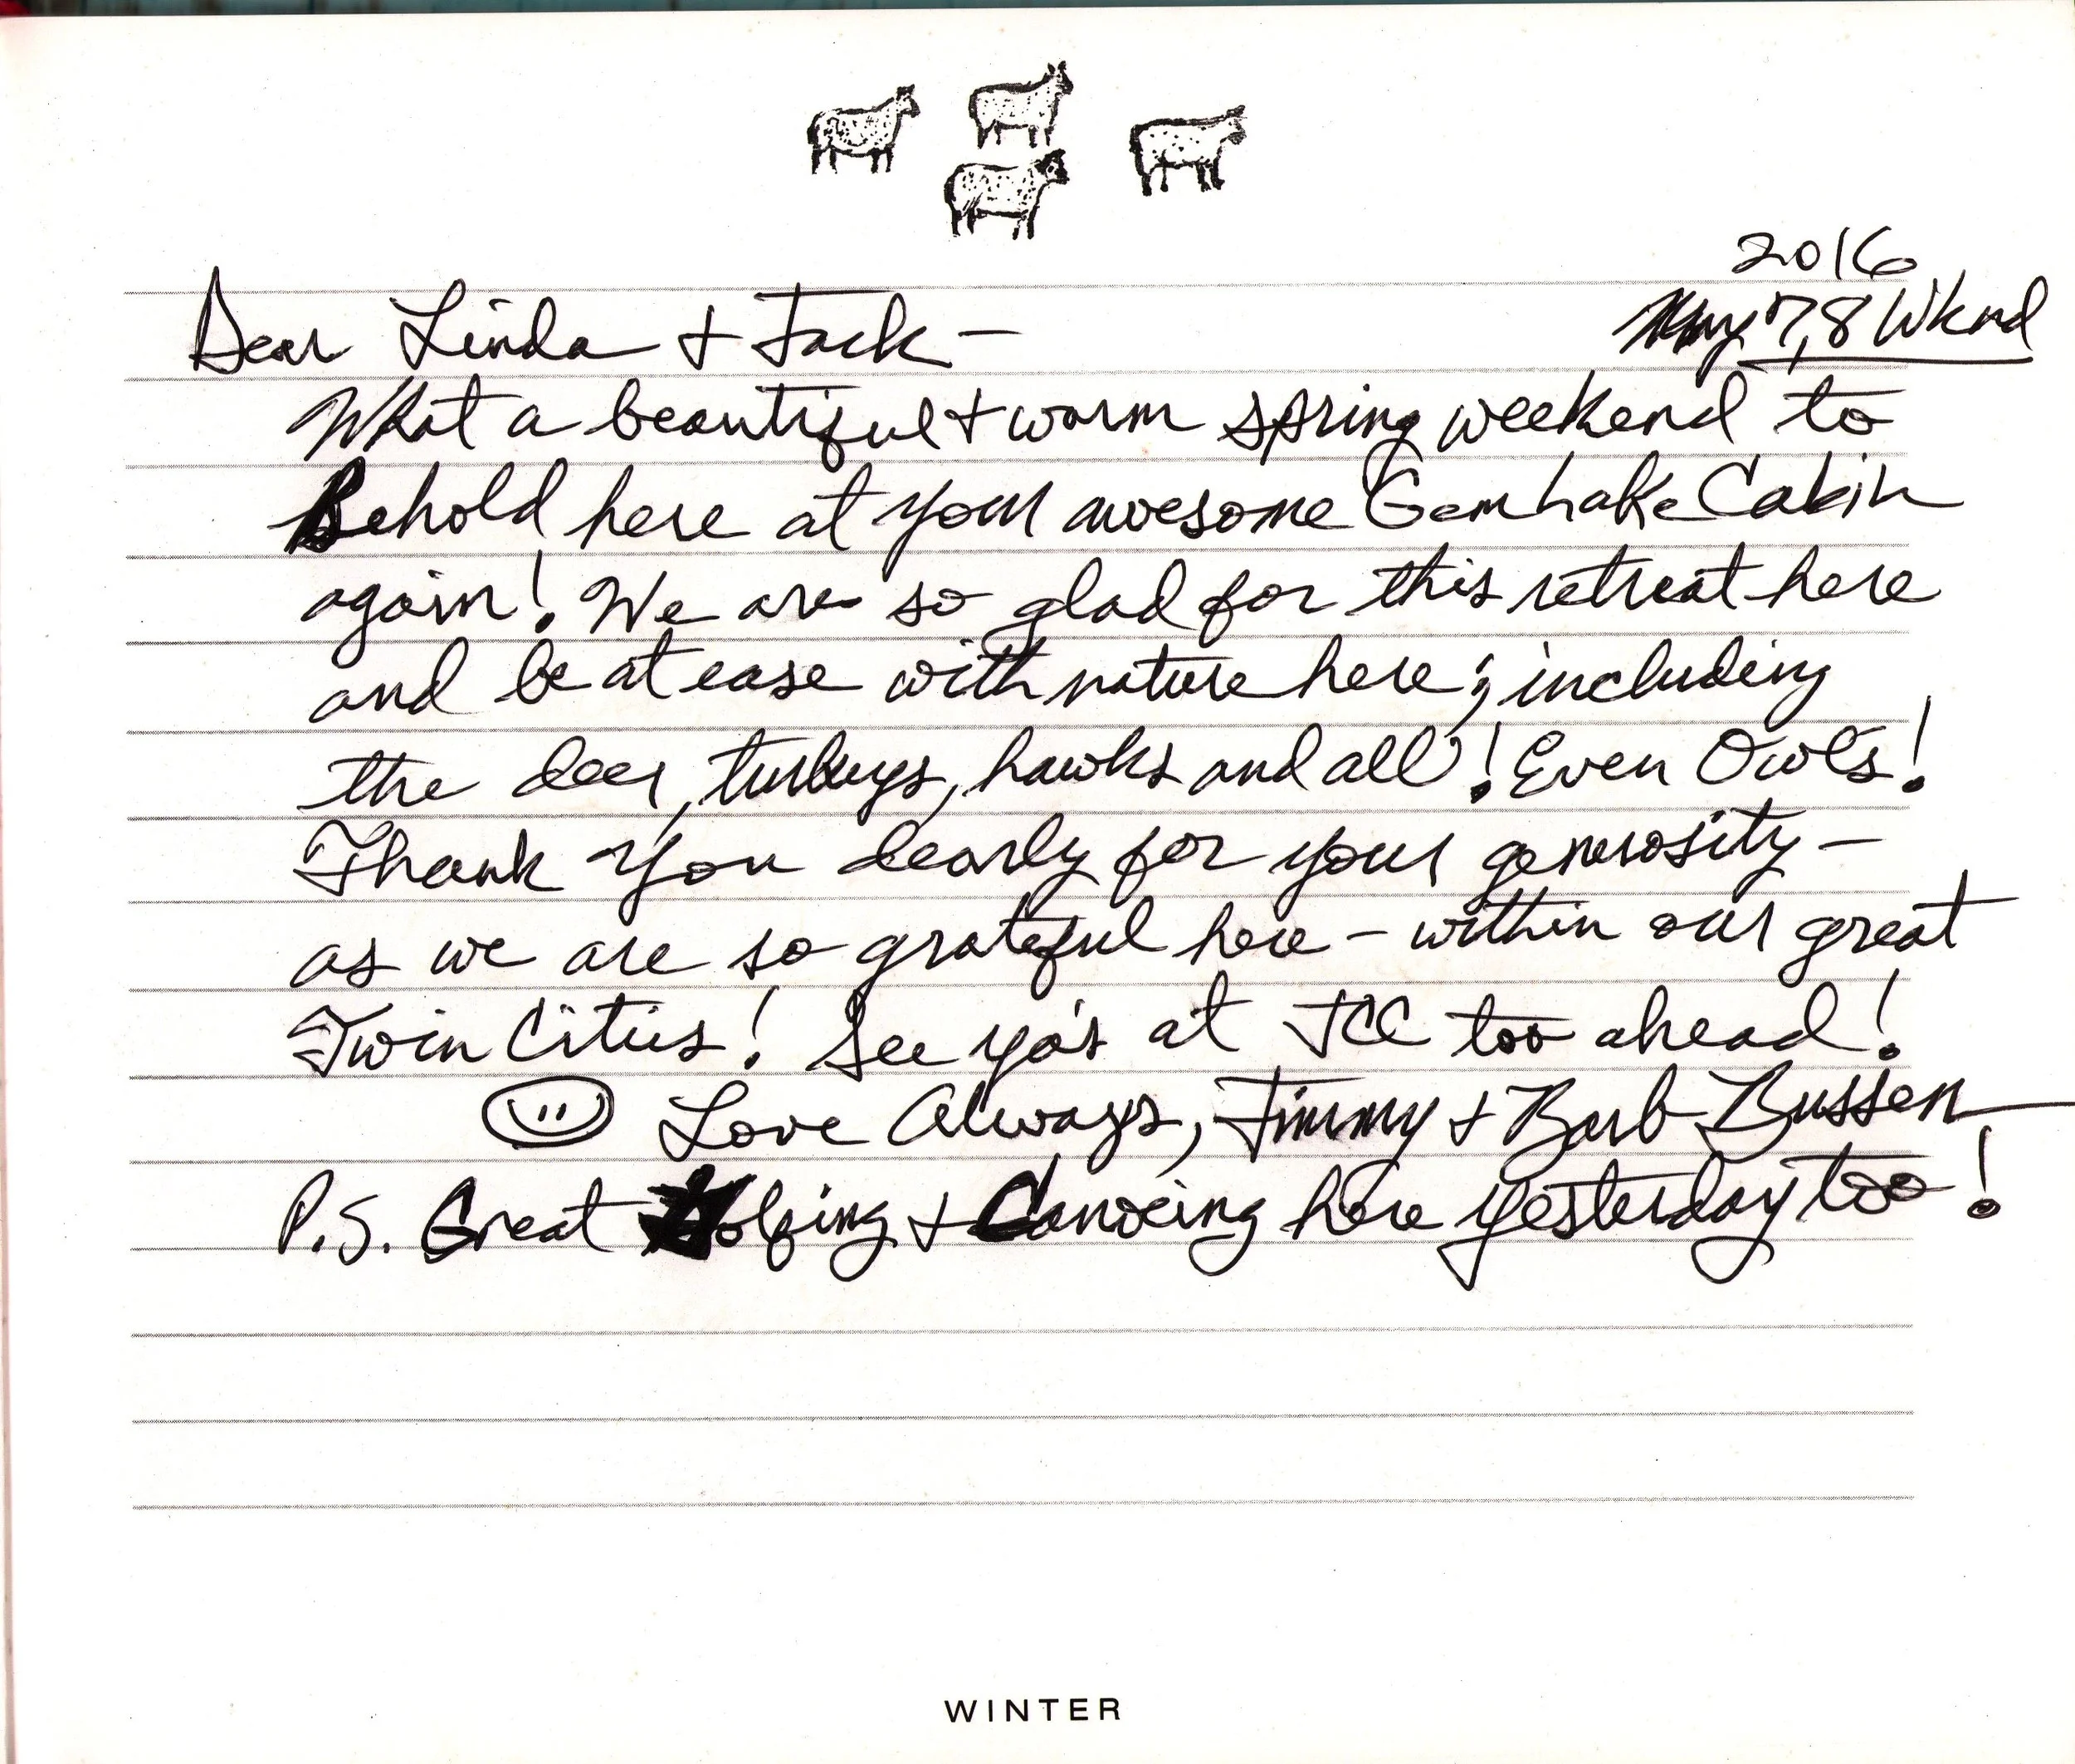 2016
Dear Linda + Jack — May 7,8 Wknd
What a beautiful + warm spring weekend to
Behold here at your awesome Gem Lake Cabin
again! We are so glad for this retreat here
and be at ease with nature here; including
the deer, turkeys, hawks and all! Even Owls!
Thank You dearly for your generosity —
as we are so grateful here — within our great
Twin Cities! See ya's at JCC too ahead!
Love Always, Jimmy + Barb Bussen
P.S. Great Golfing + Canoeing here yesterday too!
WINTER